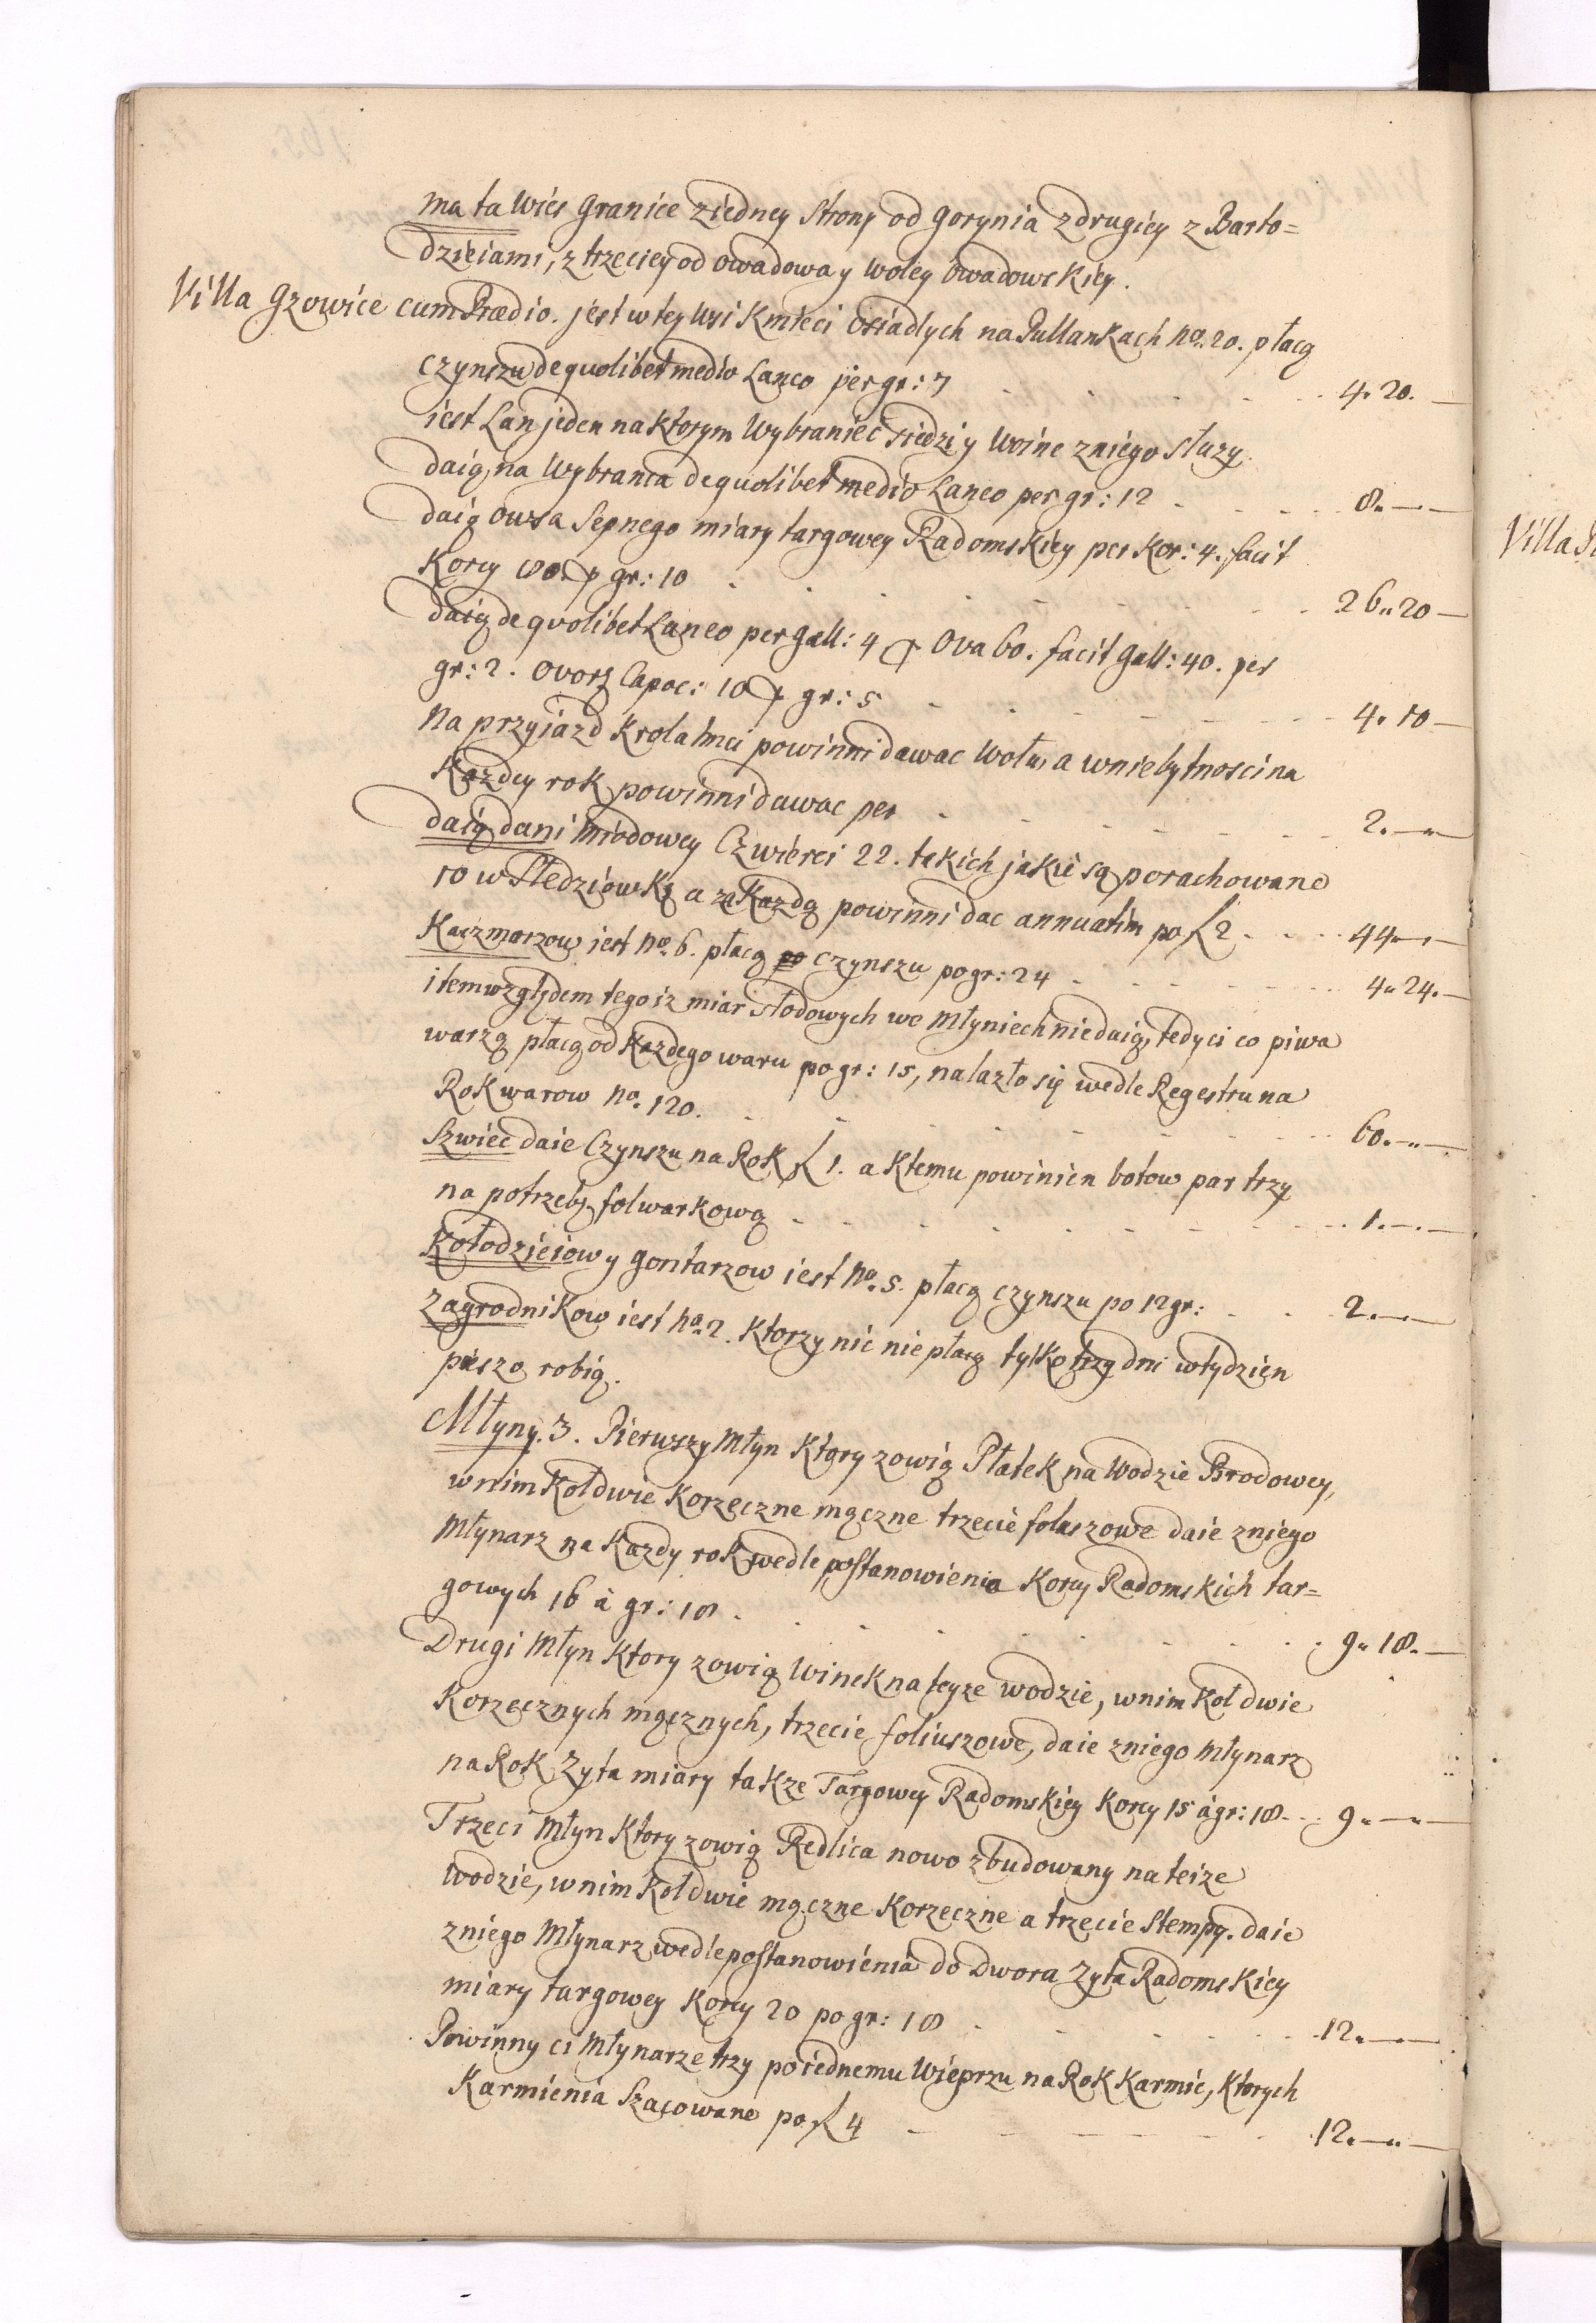 ma ta Wies Granice ziedney Strony od Gorynia z drugiey z Barto=
dzieiami, z trzeciey od Owadowa y Woley Owadowskiey.
Villa Gzowice cum Prædio. jest w tey Wsi Kmieci Osiadlych na Pullankach no. 20. płacą
czynszu de quolibet medio Laneo per gr: 7 4. 20.
iest Lan jeden na Ktorym Wybraniec siedzi y Woine z niego służy.
daią na Wybranca de quolibet medio Laneo per gr: 12 8.
daią Owsa Sepnego miary targowey Radomskiey per Kor: 4. facit
Korcy 80. p gr: 10 26. 20
daią de qvolibet Laneo per Gall: 4 & Ova 60. facit Gall: 40. per
gr: 2. Ovorz Capoc: 10 p gr: 5 4. 10
Na przyjazd Krola Jmci powinni dawac Wołu, a w niebytnosci na
Kazdey rok powinni dawac per 2.
daią dani Miodowey Czwierci 22. takich jakie są porachowane
10 w Sledziowkę a za Kazdą powinni dac annuatim po fl 2 44
Kaczmarzow iest no. 6. płacą po czynszu po gr: 24 4. 24.
item względem tego iz miar słodowych we Młyniech nie daią, tedy ci co piwa
warzą płacą od Kazdego waru po gr: 15, nalazło się wedle Regestru na
Rok warow no. 120. 60.
Szwiec daie Czynszu na Rok fl 1. a Ktemu powinien botow par trzy
na potrzebę folwarkową 1.
Kołodzieiow y Gontarzow iest no. 5. płacą czynszu po 12 gr: 2.
Zagrodnikow iest no. 2. Ktorzy nic nie płacą tylko trzy dni w tydzien
pieszo robią.
Młyny. 3. Pierwszy Młyn Ktory zowią Płatek na Wodzie Brodowey,
w nim Koł dwie Korzeczne mączne trzecie foluszowe daie z niego
Młynarz na Kazdy rok wedle postanowienia Korcy Radomskich tar=
gowych 16 à gr: 18. 9. 18.
Drugi Młyn Ktory zowią Winek na teyze wodzie, w nim Koł dwie
Korzecznych mącznych, trzecie foliuszowe, daie z niego Młynarz
na Rok Zyta miary takze Targowey Radomskiey Korcy 15 à gr: 18. 9.
Trzeci Młyn Ktory zowią Redlica nowo zbudowany na teize
wodzie, w nim Koł dwie mączne Korzeczne a trzecie Stempy. daie
z niego Młynarz wedle postanowienia do Dwora Zyta Radomskiey
miary targowey Korcy 20 po gr: 18 12.
Powinny ci Młynarze trzy po iednemu Wieprzu na Rok Karmic, Ktorych
Karmienia Szacowane po fl 4 12.
Villa